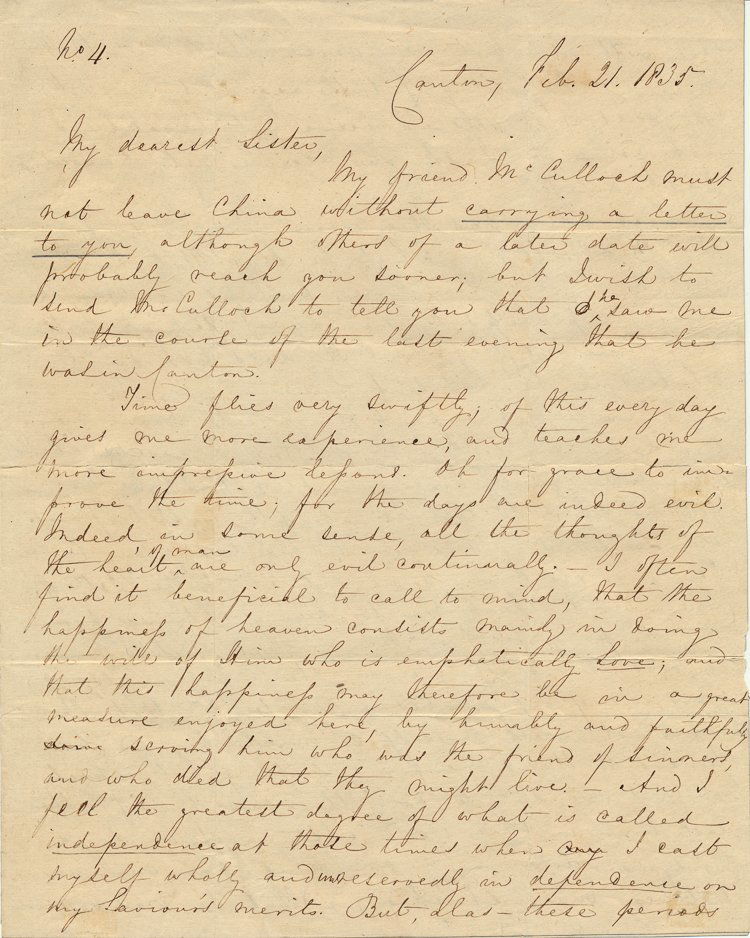 No 4.
Canton, Feb. 21. 1835.
My dearest Sister,
My friend McCulloch must
not leave China without carrying a letter
to you, although others of a later date will
probably reach you sooner; but I wish to
send McCulloch to tell you that he saw me
in the course of the last evening that he
was in Canton.
Time flies very swiftly; of this every day
gives me more experience, and teaches me
more impressive lessons. Oh for grace to im-
prove the time; for the days are indeed evil.
Indeed, in some sense, all the thoughts of
the heart of man are only evil continually. – I often
find it beneficial to call to mind, that the
happiness of heaven consists mainly in doing
the will of Him who is emphatically Love; and
that this happiness may therefore be in a great
measure enjoyed here, by humbly and faithfully
serving him who was the friend of sinners,
and who died that they might live. – And I
feel the greatest degree of what is called
independence at those times when I cast
myself wholly and unreservedly in dependence on
my Saviour's merits. But, alas – these periods